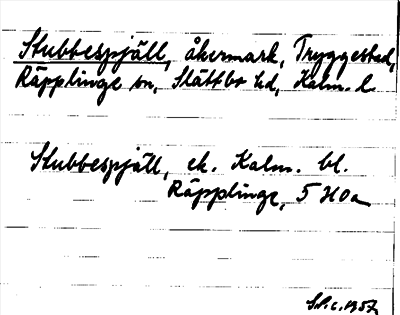 Stubbespjäll, åkermark, Tryggestad,
Räpplinge sn, Slättbo hd, Kalm. l.
Stubbespjäll, ek. Kalm. bl.
Räpplinge, 5 H0a
1957